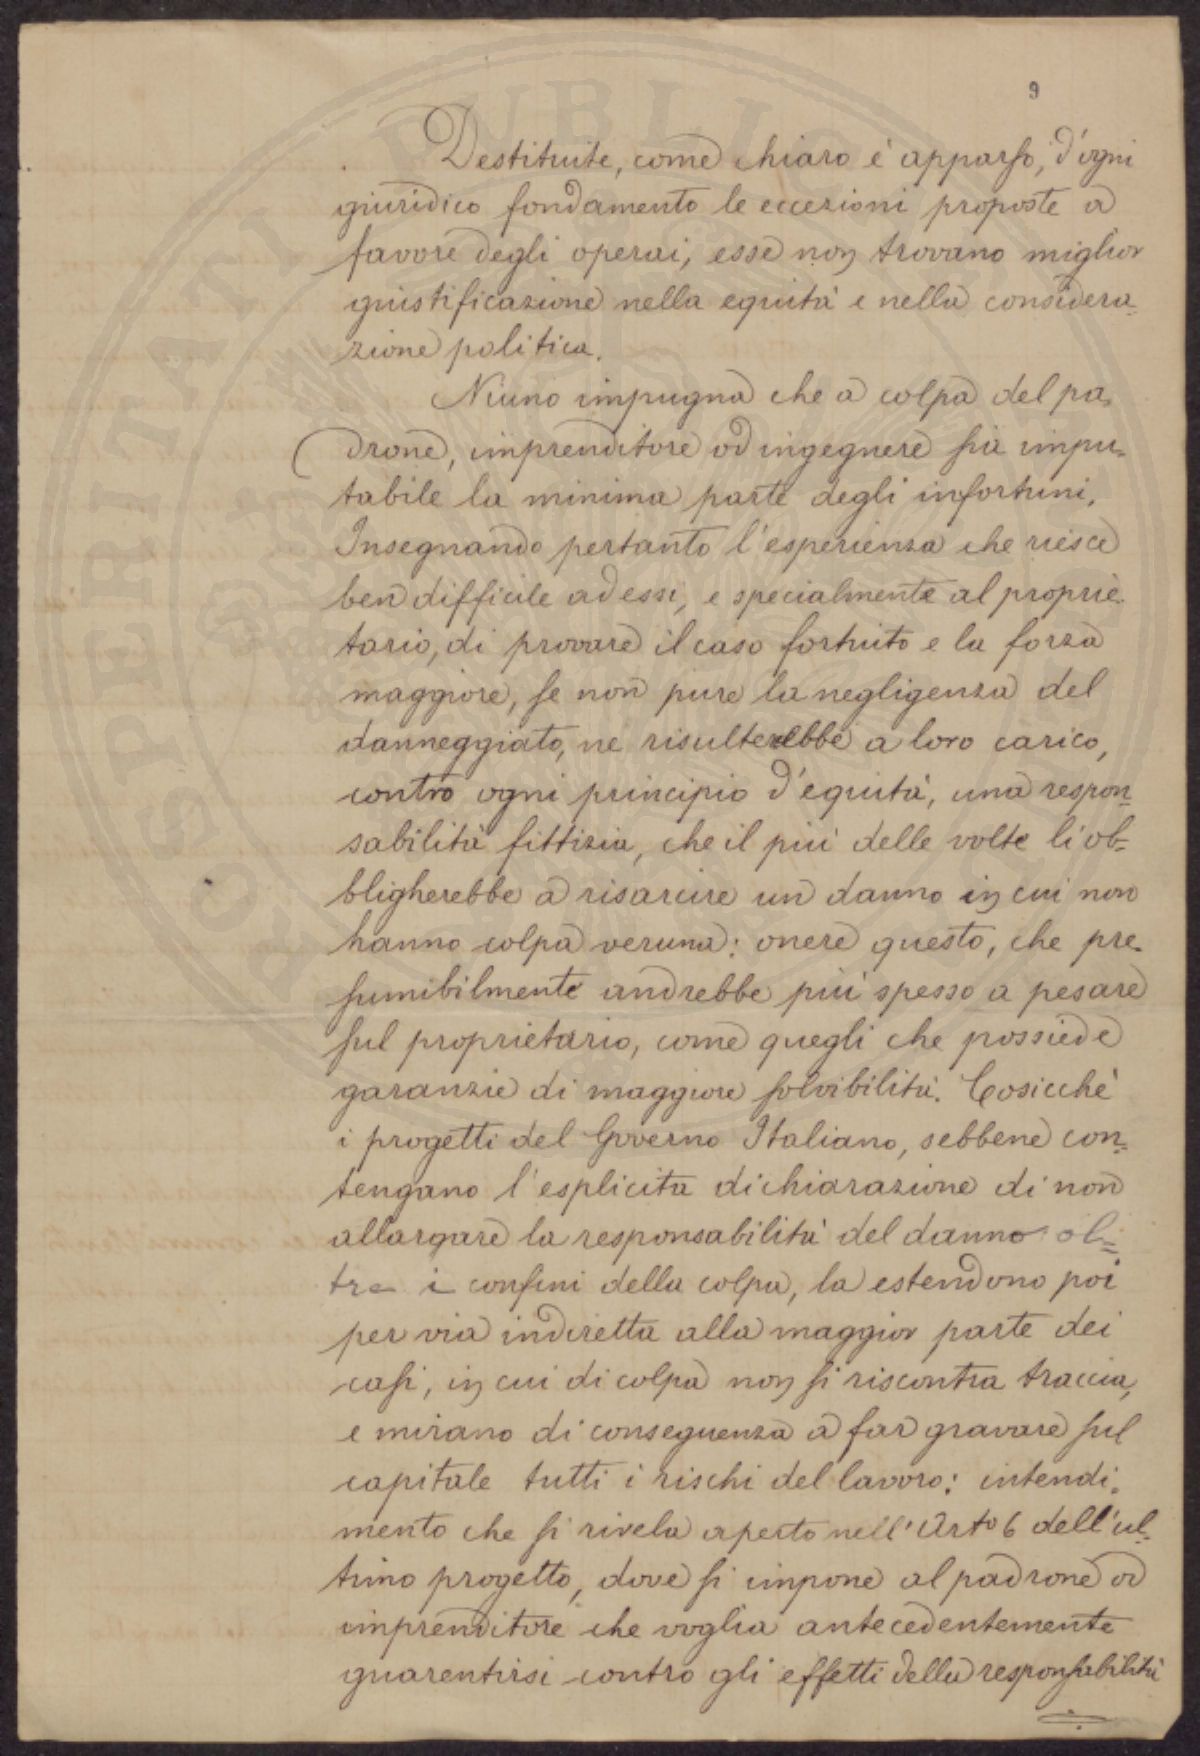 9
Destituite, come chiaro è apparso, d'ogni
giuridico fondamento le eccezioni proposte a
favore degli operai, esse non trovano miglior
giustificazione nella equità e nella considera-
zione politica.
Niuno impugna che a colpa del pa-
drone, imprenditore od ingegnere sia impu-
tabile la minima parte degli infortuni.
Insegnando pertanto l'esperienza che riesce
ben difficile ad essi, e specialmente al proprie-
tario, di provare il caso fortuito e la forza
maggiore, se non pure la negligenza del
danneggiato, ne risulterebbe a loro carico,
contro ogni principio d'equità, una respon-
sabilità fittizia, che il più delle volte li ob-
bligherebbe a risarcire un danno in cui non
hanno colpa veruna: onere questo, che pre-
sumibilmente andrebbe più spesso a pesare
sul proprietario, come quegli che possiede
garanzie di maggiore solvibilità. Cosicchè
i progetti del Governo Italiano, sebbene con-
tengano l'esplicita dichiarazione di non
allargare la responsabilità del danno ol-
tre i confini della colpa, la estendono poi
per via indiretta alla maggior parte dei
casi, in cui di colpa non si riscontra traccia,
e mirano di conseguenza a far gravare sul
capitale tutti i rischi del lavoro: intendi-
mento che si rivela aperto nell'Arto 6 dell'ul-
timo progetto, dove si impone al padrone od
imprenditore che voglia antecedentemente
guarentirsi contro gli effetti della responsabilità